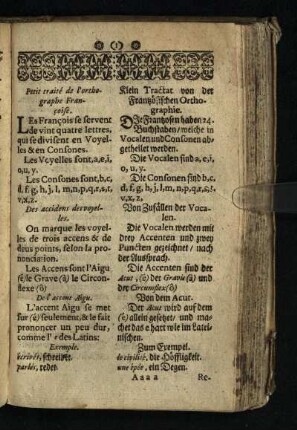 (1)
Petit traité de l'ortho-
graphe Fran-
çoise.
LEs François se servent
de vint quatre lettres,
qui se divisent en Voyel-
les & en Consones.
Les Voyelles sont, a, e, i,
o, u, y.
Les Consones sont, b, c,
d, f, g, h, j, l, m, n, p, q, r, s, t,
v, x, z.
Des accidens des voyel-
les.
On marque les voyel-
les de trois accens & de
deux points, selon la pro-
nonciation.
Les Accens sont l'Aigu
le Grave (è) le Circon-
flexe (ê)
De l'accent Aigu.
L'accent Aigu se met
sur (é) seulement, & le fait
prononcer un peu dur,
comme l'e des Latins:
Exemple.
écrivés, schreibet
parlés, redet.
Klein Tractat von der
Frantzösischen Ortho-
graphie.
DIe Frantzosen haben 24.
Buchstaben / welche in
Vocalen und Consonen ab-
getheilet werden.
Die Vocalen sind a, e, i,
o, u, y.
Die Consonen sind b, c,
d, f, g, h, j, l, m, n, p, q, r, s, t,
v, x, z,
Von Zufällen der Voca-
len.
Die Vocalen werden mit
drey Accenten und zwey
Puncten gezeichnet / nach
der Aussprach.
Die Accenten sind der
Acut, (é) der Gravis (è) und
der Circumflex (ê)
Von dem Acut.
Der Acut wird auf dem
(e) allein gesetzet / und ma-
chet das e hart wie im Latei-
nischen.
Zum Exempel.
la civilité, die Höffligkeit.
une épée, ein Degen.
Aaaa
Re-